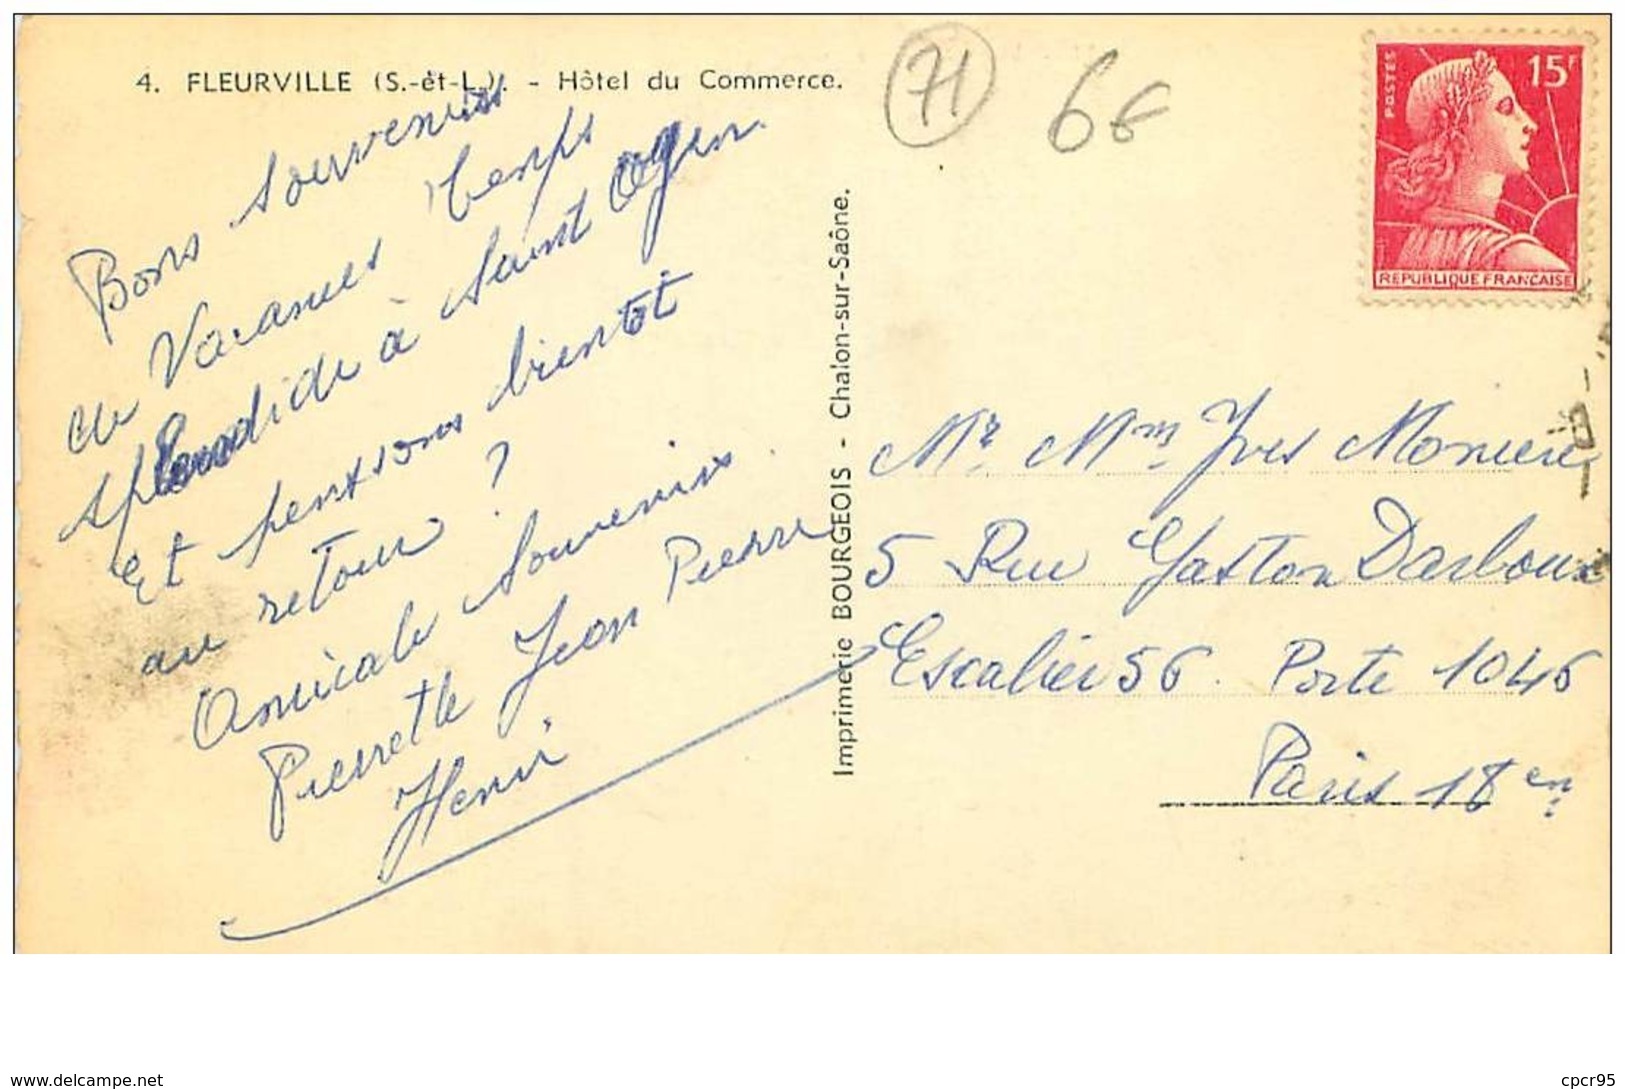 4. FLEURVILLE (S.-et-L.). - Hôtel du Commerce.
71
6€
POSTES
15F
REPUBLIQUE FRANCAISE
Bons Souvenirs
de Vacances Temps
splendide à Saint Oyen
Et pensons bientôt
au retour ?
Amicale Souvenirs
Pierrette Jean Pierre
Henri
Imprimerie BOURGEOIS - Chalon-sur-Saône.
Mr Mme Yves Moniere
5 Rue Gaston Darboux
Escalier 56 Porte 1046
Paris 18 em
www.delcampe.net
cpcr95